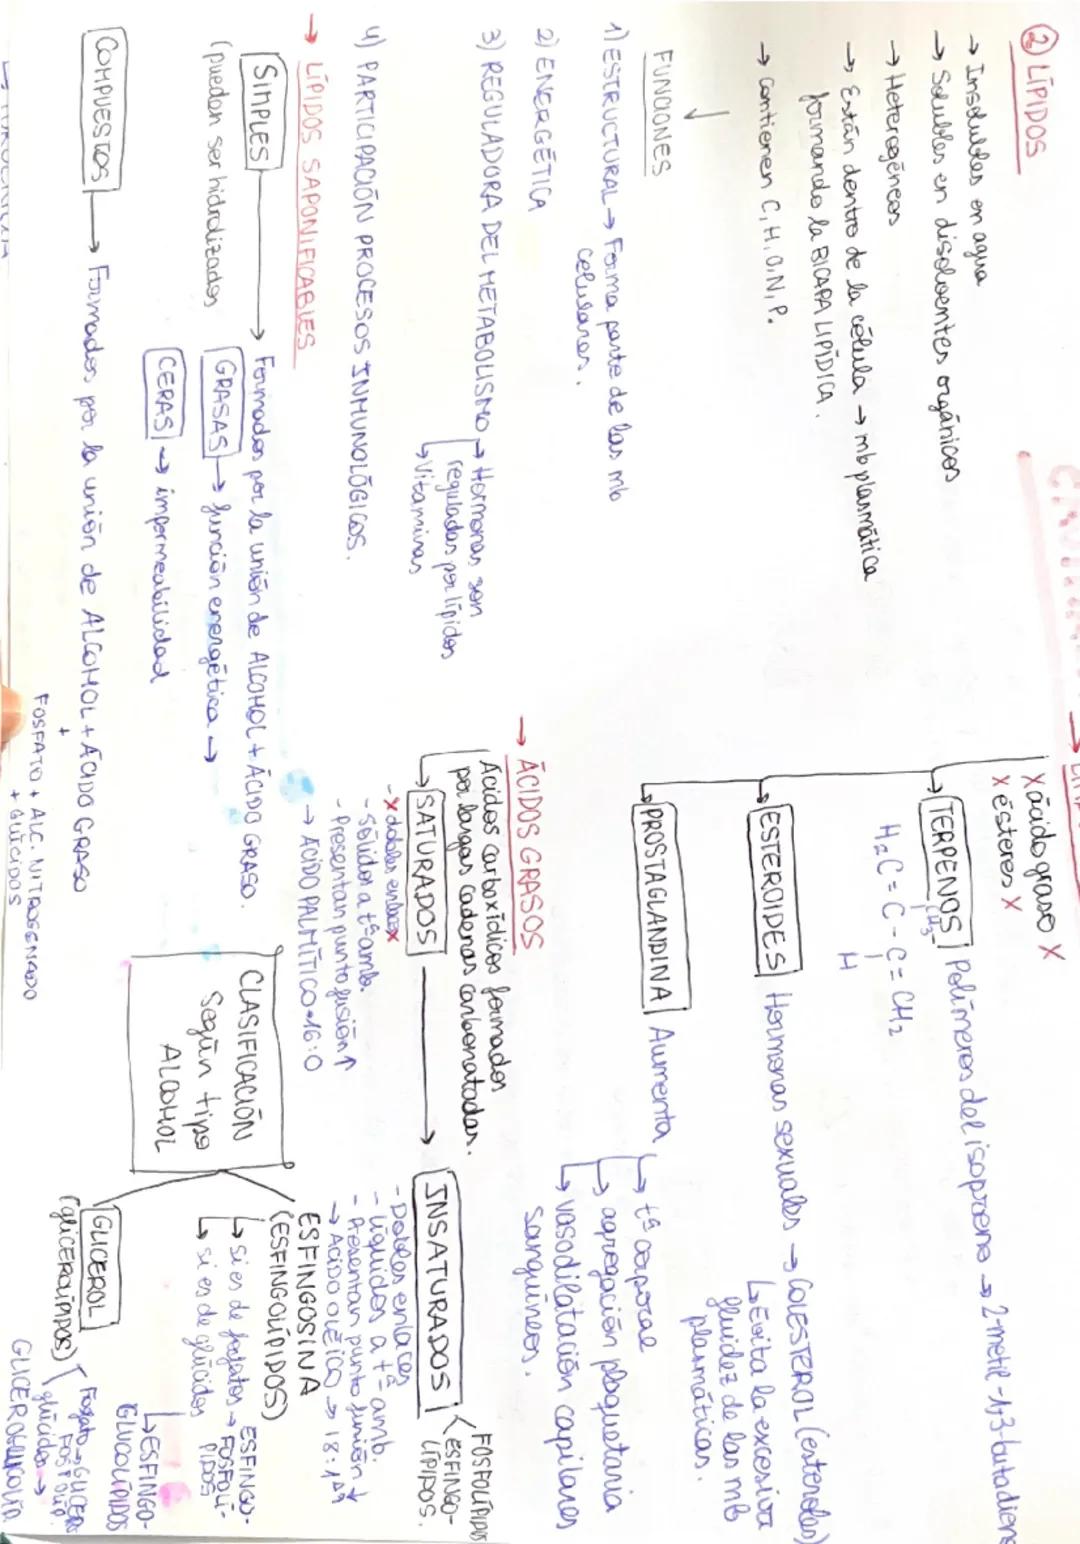 ② LÍPIDOS
→ Insolubles en agua
→ Solubles en disolventes orgánicos
→ Heterogéneos
→ Están dentro de la célula → mb plasmática
formando la BICAPA LIPÍDICA.
→ Contienen C, H, O, N, P.
FUNCIONES
1) ESTRUCTURAL → Forma parte de las mb
celulares.
2) ENERGÉTICA
3) REGULADORA DEL METABOLISMO → Hormonas son
reguladas por lípidos
↳ Vitaminas
4) PARTICIPACIÓN PROCESOS INMUNOLÓGICOS.
→ LÍPIDOS SAPONIFICABLES
SIMPLES → Formados por la unión de ALCOHOL + ÁCIDO GRASO.
(pueden ser hidrolizados
GRASAS → función energética →
CERAS → impermeabilidad
COMPUESTOS → Formados por la unión de ALCOHOL + ÁCIDO GRASO
+
FOSFATO + ALC. NITROGENADO
+ GLÚCIDOS
X ácido graso X
X ésteres X
TERPENOS Polímeros del isopreno → 2-metil-1,3-butadieno
CH3
H2C = C - C = CH2
H
ESTEROIDES Hormonas sexuales → COLESTEROL (esteroles)
↳ Evita la excesiva
fluidez de las mb
plasmáticas.
PROSTAGLANDINA Aumenta
↳ tª corporal
↳ agregación plaquetaria
↳ vasodilatación capilares
sanguíneos.
→ ÁCIDOS GRASOS
Ácidos carboxídicos formados
por largas cadenas carbonatadas.
SATURADOS → INSATURADOS
FOSFOLÍPIDOS
ESFINGO-
LÍPIDOS.
- X dobles enlaces X
- Sólidos a tª amb.
- Presentan punto fusión ↑
→ ÁCIDO PALMÍTICO 16:0
- Dobles enlaces
- líquidos a tª amb.
- Presentan punto fusión ↓
→ ÁCIDO OLÉICO → 18:1Δ9
CLASIFICACIÓN
Según tipo
ALCOHOL
ESFINGOSINA
(ESFINGOLÍPIDOS)
↳ si es de fosfatos → ESFINGO-
FOSFOLÍ-
PIDOS
↳ si es de glúcidos
↳ ESFINGO-
GLUCOLÍPIDOS
GLICEROL
(GLICEROLÍPIDOS)
Fosfato → GLICERO
FOSFOLÍP.
glúcidos →
GLICEROGLUCOLÍP